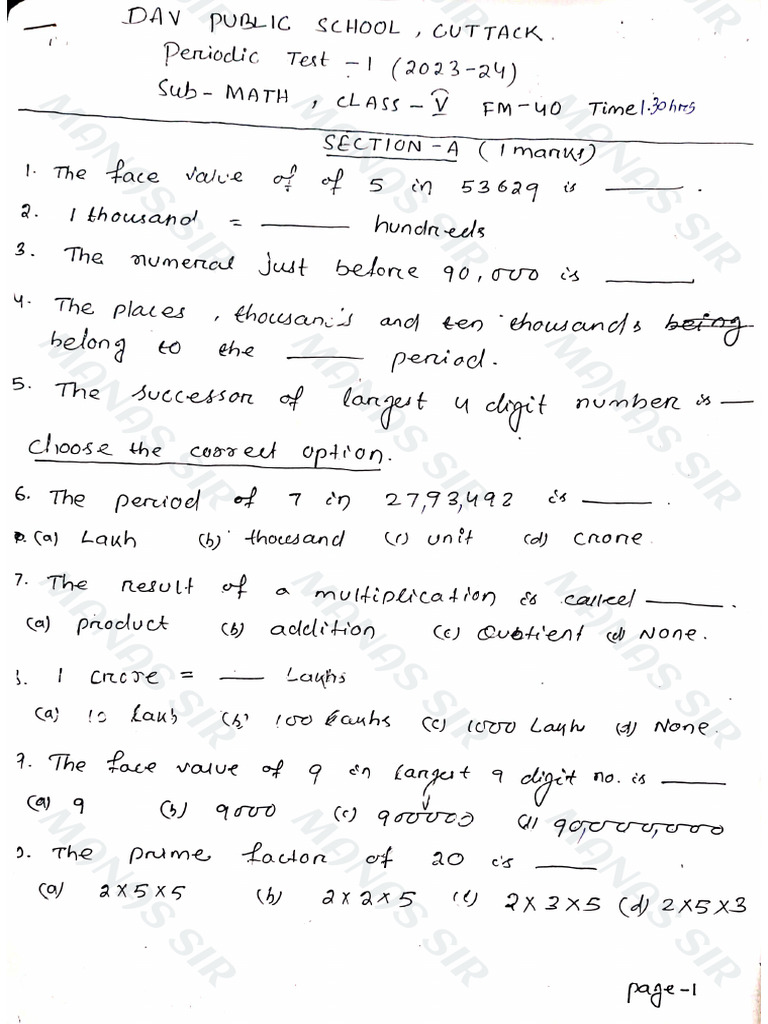 DAV PUBLIC SCHOOL, CUTTACK.
Periodic Test -1 (2023-24)
Sub- MATH, CLASS- V FM-40 Time 1.30hrs
SECTION -A (1 marks)
1. The face value of of 5 in 53629 is ______.
2. 1 thousand = ______ hundreds
3. The numeral just before 90,000 is ______
4. The places, thousands and ten thousands being
belong to the ______ period.
5. The successor of largest 4 digit number is __
Choose the correct option.
6. The period of 7 in 27,93,492 is ______.
(a) Lakh (b) thousand (c) unit (d) crore.
7. The result of a multiplication is called ______.
(a) product (b) addition (c) Quotient (d) None.
8. 1 crore = ___ Lakhs
(a) 10 Lakh (b) 100 Lakhs (c) 1000 Lakh (d) None.
9. The face value of 9 in largest 9 digit no. is ______
(a) 9 (b) 9000 (c) 900000 (d) 90,000,000
0. The prime factor of 20 is ______.
(a) 2x5x5 (b) 2x2x5 (c) 2x3x5 (d) 2x5x3
page-1
MANAS SIR